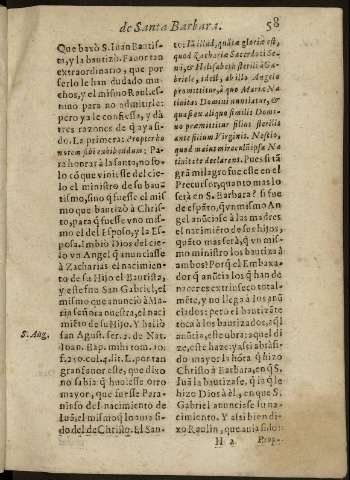 de Santa Barbara.
58
Que baxò S. Iuan Bautis-
ta, y la bautizò. Fauor tan
extraordinario, que por
serlo le han dudado mu-
chos, y el mismo Raul. es-
tuuo para no admitirle:
pero ya le confiessa, y dà
tres razones de q̃ aya si-
do. La primera: Propter ho-
norem sibi exhibendum: Pa-
ra honrar à la santa, no so-
lo cõ que viniesse del cie-
lo el ministro de su bau-
tismo, sino q̃ fuesse el mis
mo que bautizò à Chris-
to, para q̃ fuesse vno mis-
mo el del Esposo, y la Es-
posa. Imbiò Dios del cie-
lo vn Angel q̃ anunciasse
à Zacharias el nacimien-
to de su Hijo el Bautista,
y este fue San Gabriel, el
mismo que anunciò à Ma-
ria señora nuestra, el naci
miẽto de su Hijo. Y hallò
san Agust. ser. 2. de Nat.
Ioan. Bap. mihi tom. 10.
f. 210. col. 4. lit. L. por tan
gran fauor este, que dixo
no sabia q̃ huuiesse otro
mayor, que fuesse Para-
ninfo del nacimiento de
Iuã, el mismo q̃ lo auia si-
do del de Christo. El San-
S. Aug.
to: In illud, quãta gloriæ est,
quod Zachariæ Sacerdoti Se-
ni, & Helisabeth sterili à Ga-
briele, idest, ab illo Angelo
promittitur, à quo Mariæ Na-
tiuitas Domini nuntiatur, &
quasi ex aliquo simili Domi-
no præmittitur filius sterilis
ante filium Virginis. Nescio,
quod maius miraculũ ipsa Na-
tiuitate declarant. Pues si tã
grã milagro fue esse en el
Precursor, quanto mas lo
serà en S. Barbara? si fue
de espãto, q̃ vn mismo An
gel anũciasse à las madres
el nacimiẽto de sus hijos,
quãto mas serà, q̃ vn mis-
mo ministro los bautiza à
ambos? Porq̃ el Embaxa-
dor q̃ anũcia los q̃ han de
nacer es extrinseco total-
mẽte, y no llega à los anũ
ciados: pero el bautizãte
toca à los bautizados, aq̃l
anũcia, este obra: aquel di
ze, este haze: y assi abraçò-
do mayor la hõra q̃ hizo
Christo à Barbara, en q̃ S.
Iuã la bautizase, q̃ la q̃ le
hizo Dios à èl, en que S.
Gabriel anunciasse su na-
cimiento. Y assi bien di-
xo Raulin, que auia sido:
H 2
Prop-